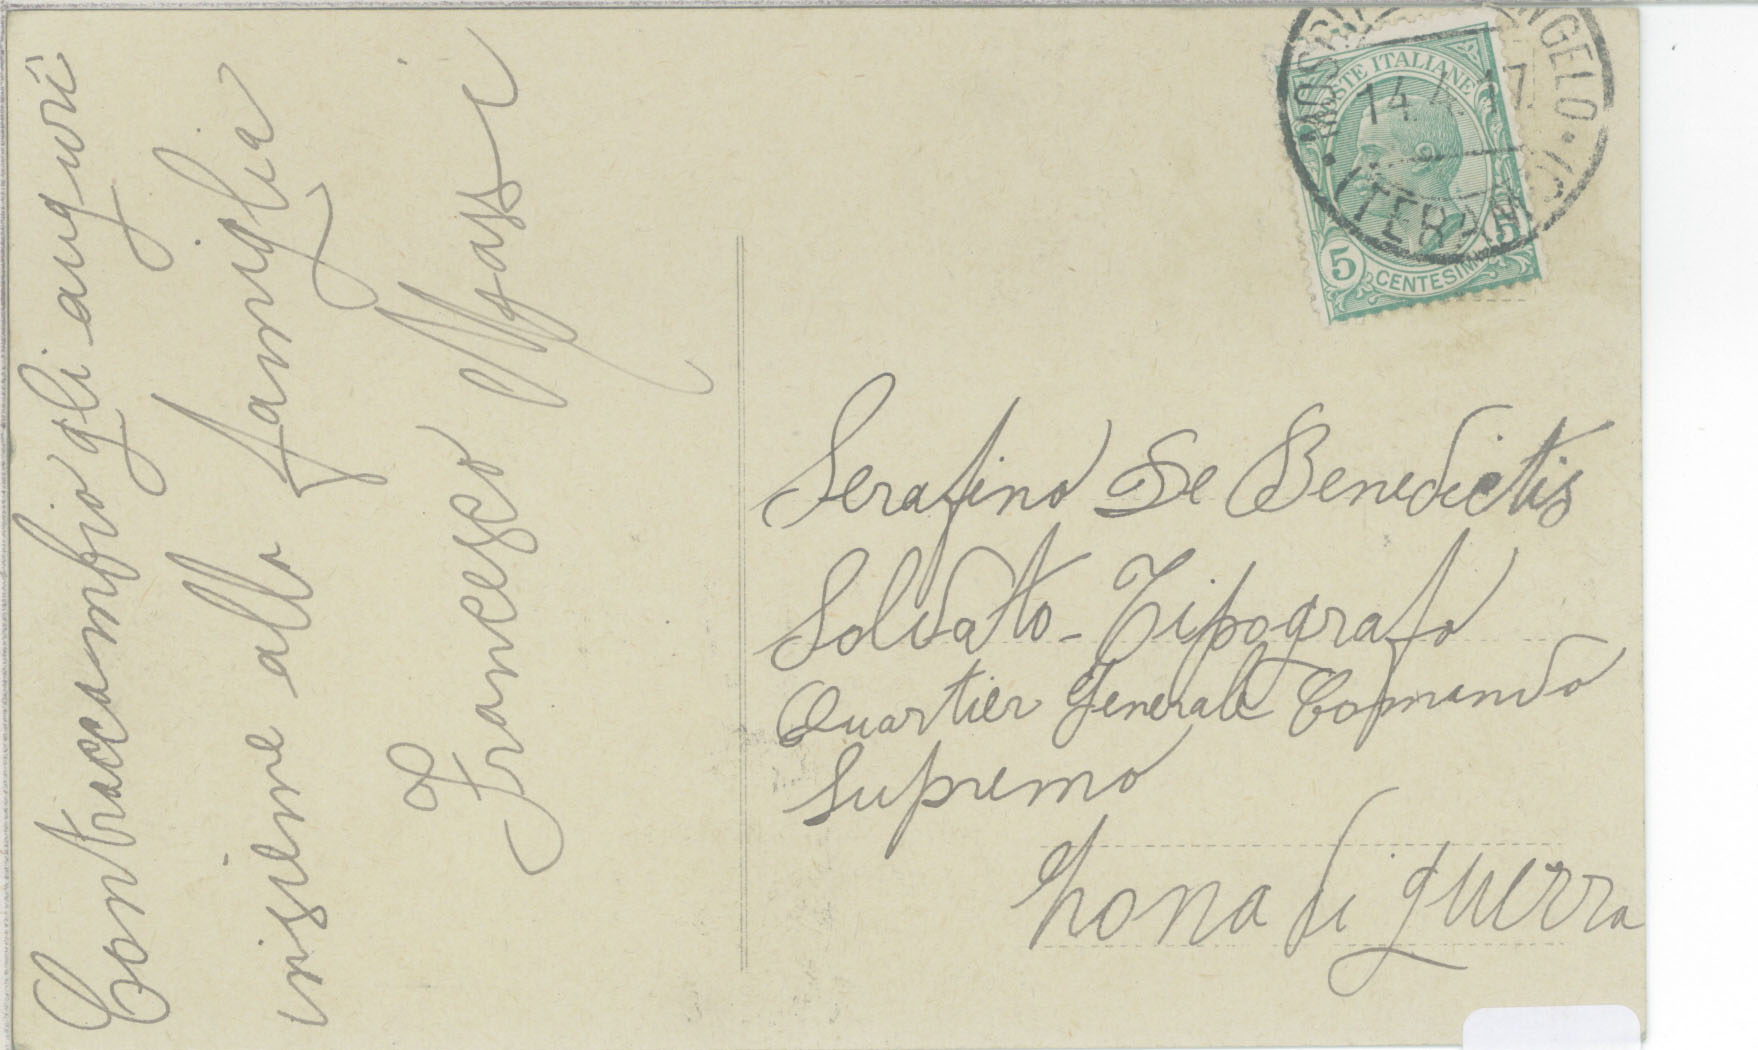 Contraccambio gli auguri
insieme alla famiglia
Francesco Massi
POSTE ITALIANE
5 CENTESIMI 5
MOSCIANO S. ANGELO
14.4.17
(TERAMO)
Serafino De Benedictis
Soldato - Tipografo
Quartier Generale Comando
Supremo
Zona di guerra